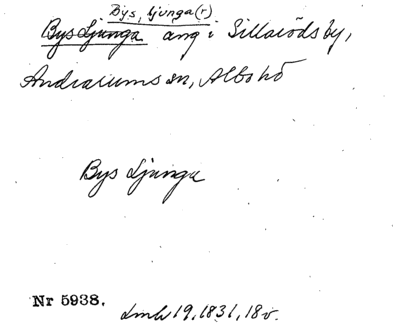 Bys, ljunga(r)
Bys Ljunga äng i Sillaröds by,
Andrarums sn, Albo hd
Bys Ljunga
Nr 5938.
Lmh 19, 1831, 18 v.